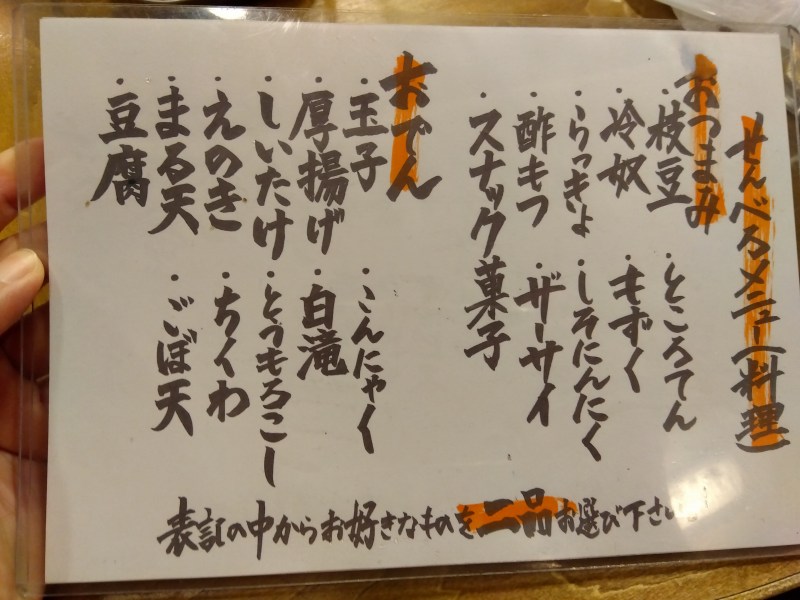 せんべろメニュー(料理)
おつまみ
・枝豆 ・ところてん
・冷奴 ・もずく
・らっきょ ・しそにんにく
・酢もつ ・ザーサイ
・スナック菓子
おでん
・玉子 ・こんにゃく
・厚揚げ ・白滝
・しいたけ ・とうもろこし
・えのき ・ちくわ
・まる天 ・ごぼ天
・豆腐
表記の中からお好きなものを二品お選び下さい